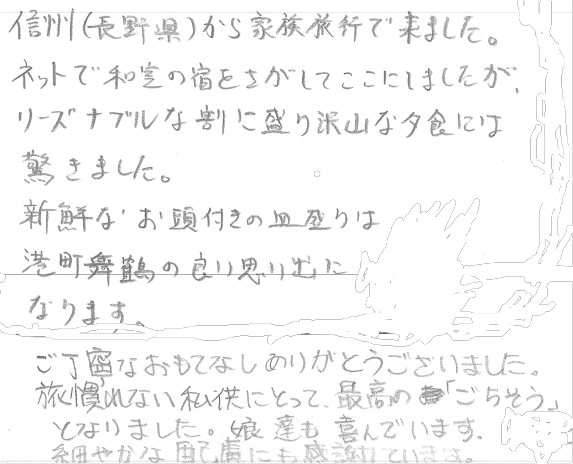 信州(長野県)から家族旅行で来ました。
ネットで和室の宿をさがしてここにしましたが、
リーズナブルな割に盛り沢山な夕食には
驚きました。
新鮮なお頭付きの皿盛りは
港町舞鶴の良り思り出に
なります。
ご丁寧なおもてなしありがとうございました。
旅慣れない私供にとって、最高の「ごちそう」
となりました。娘達も喜んでいます。
細やかな配慮にも感謝しています。